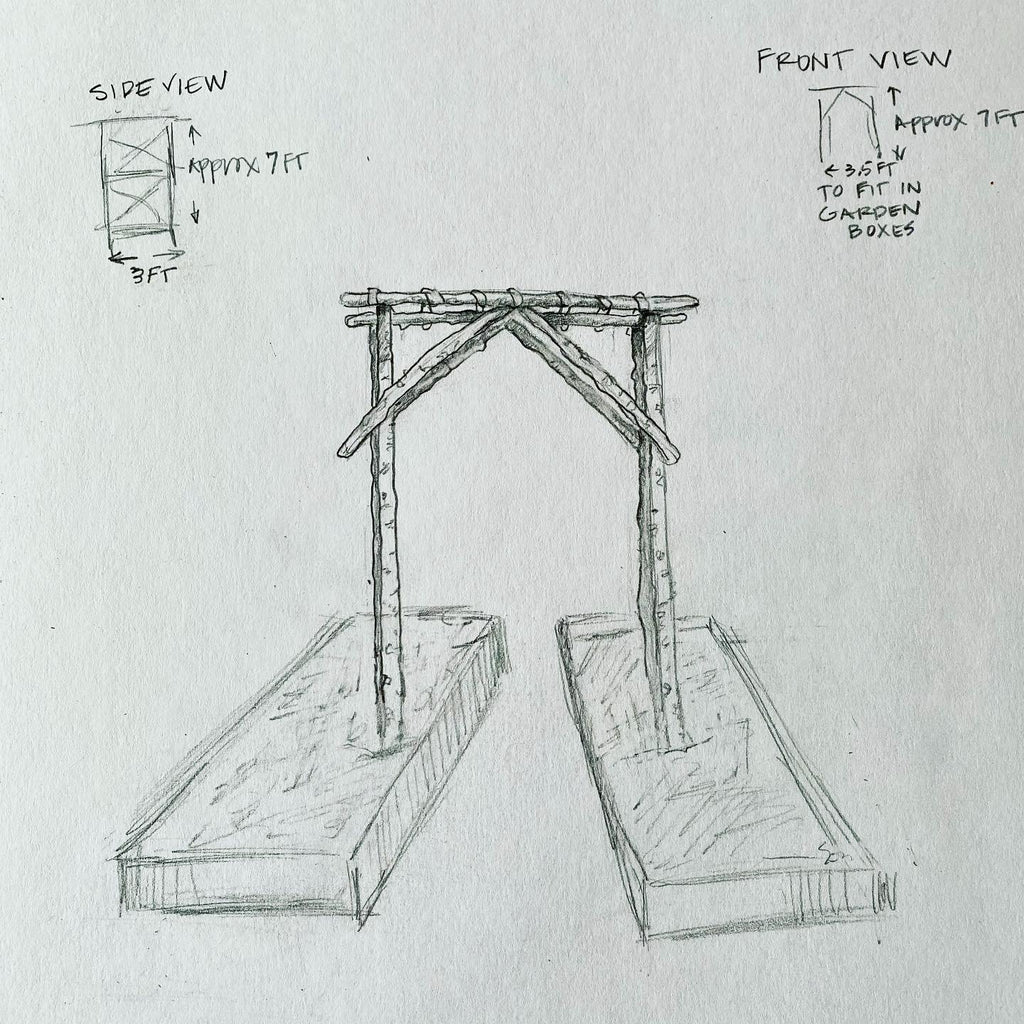 SIDE VIEW
Approx 7 FT
3 FT
FRONT VIEW
Approx 7 FT
3.5 FT
TO FIT IN
GARDEN
BOXES